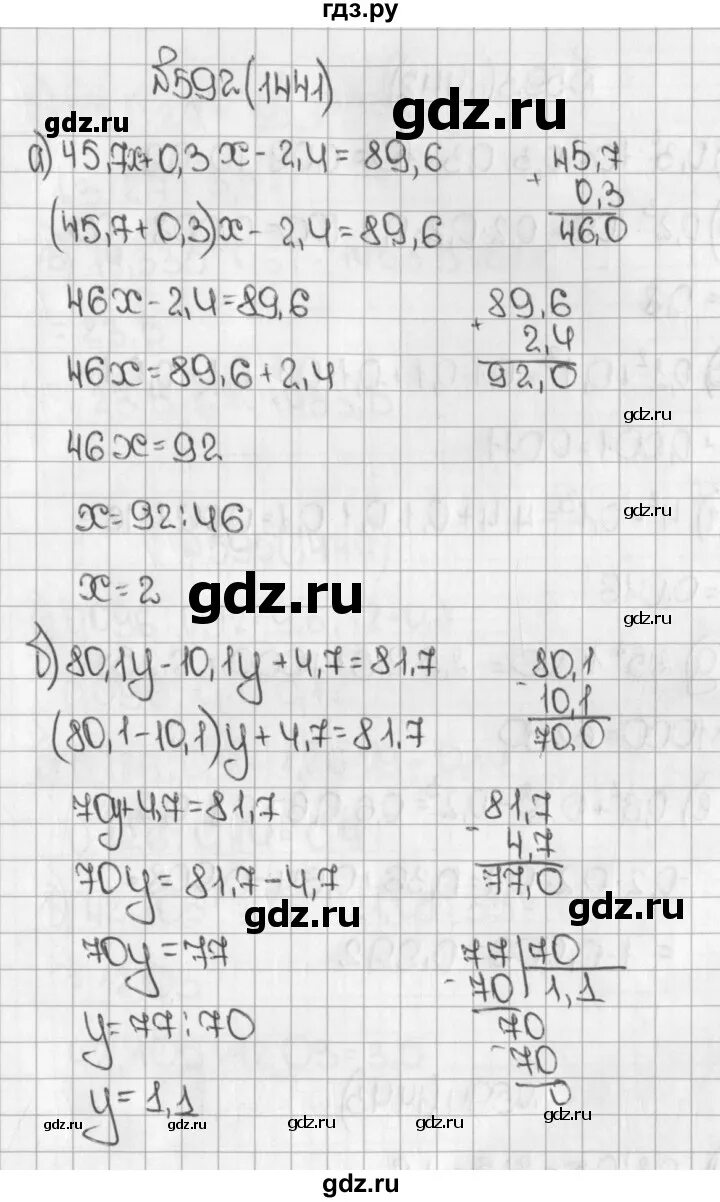 гдз.ру
№592(1441)
gdz.ru gdz.ru
а) 45,7x+0,3x-2,4=89,6
(45,7+0,3)x-2,4=89,6
46x-2,4=89,6
46x=89,6+2,4
46x=92
x=92:46
x=2
+ 45,7
0,3
46,0
+ 89,6
2,4
92,0
gdz.ru
gdz.ru
gdz.ru
gdz.ru
б) 80,1y-10,1y+4,7=81,7
(80,1-10,1)y+4,7=81,7
70y+4,7=81,7
70y=81,7-4,7
70y=77
y=77:70
y=1,1
- 80,1
10,1
70,0
- 81,7
4,7
77,0
gdz.ru
gdz.ru
77 | 70
- 70 | 1,1
70
- 70
0
gdz.ru gdz.ru gdz.ru gdz.ru gdz.ru
gdz.ru